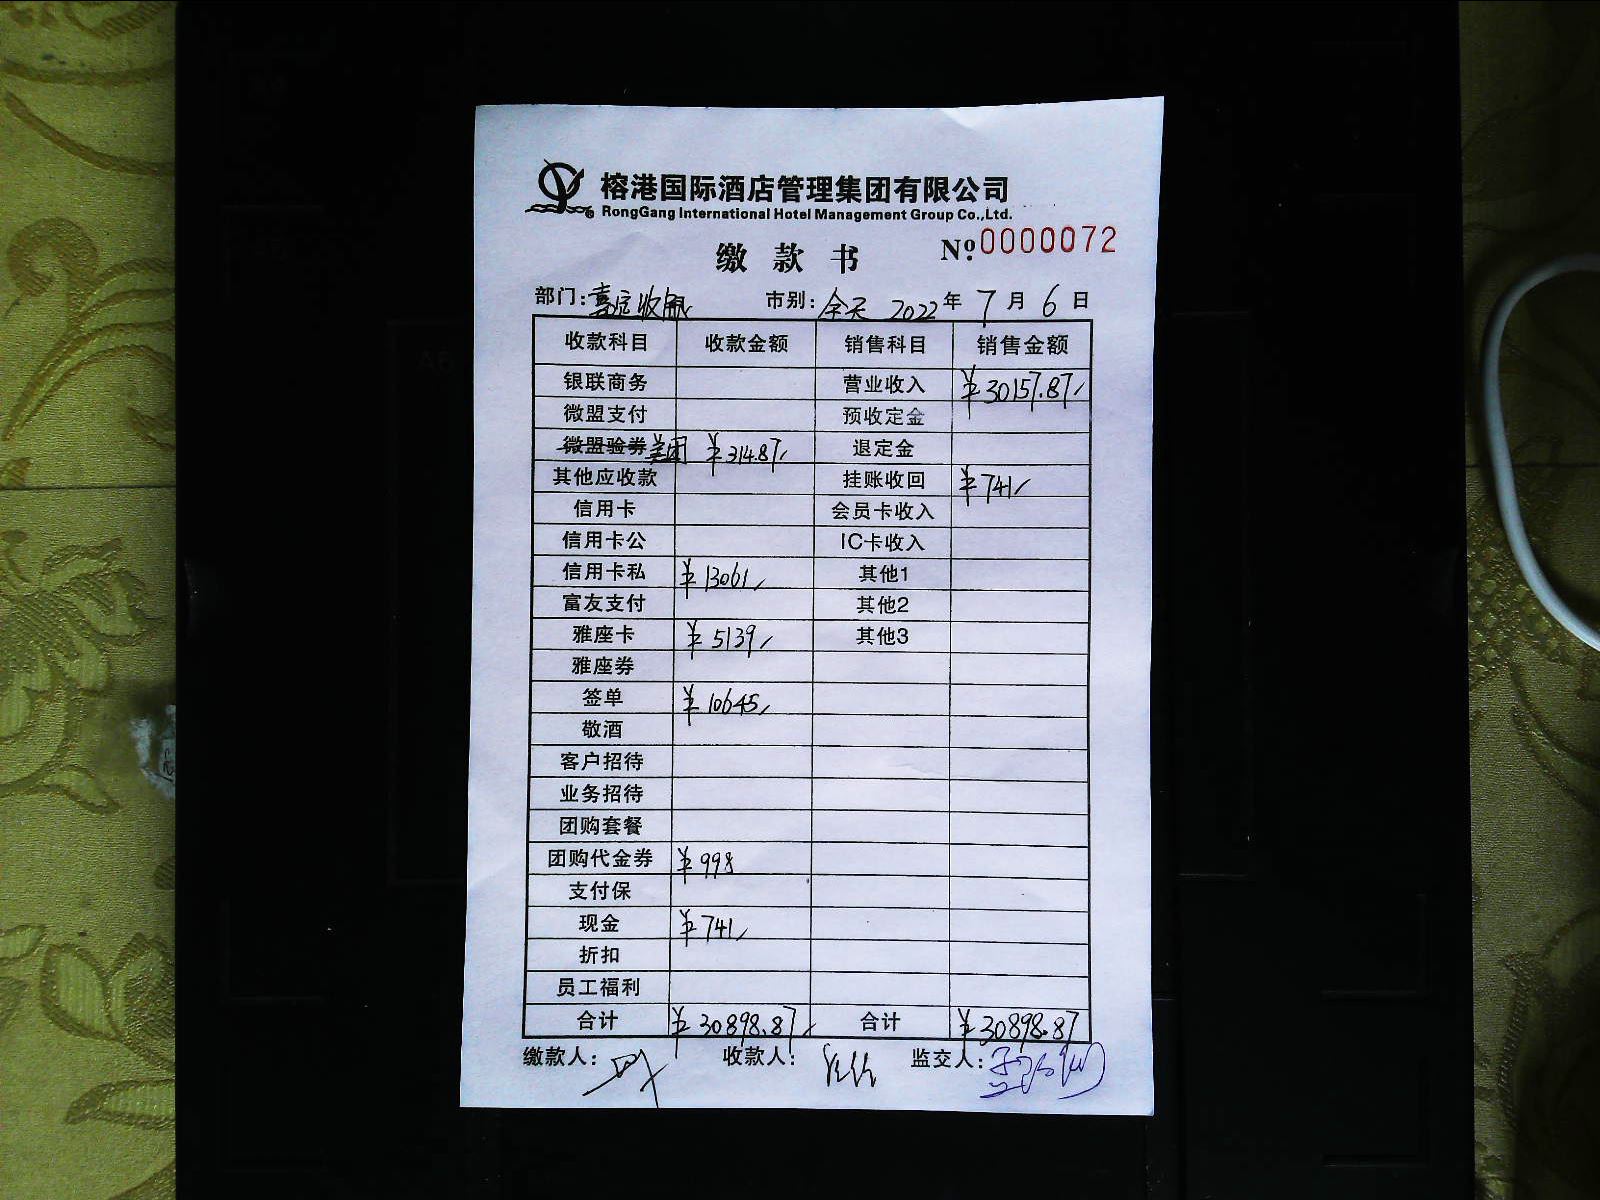 榕港国际酒店管理集团有限公司
RongGang International Hotel Management Group Co.,Ltd.
缴款书 Nº:0000072
部门:嘉定收银 市别:全天 2022年7月6日
收款科目 收款金额 销售科目 销售金额
银联商务 营业收入 ¥30157.87
微盟支付 预收定金
微盟验券 美团 ¥314.87 退定金
其他应收款 挂账收回 ¥741
信用卡 会员卡收入
信用卡公 IC卡收入
信用卡私 ¥13061 其他1
富友支付 其他2
雅座卡 ¥5139 其他3
雅座券
签单 ¥10645
敬酒
客户招待
业务招待
团购套餐
团购代金券 ¥998
支付保
现金 ¥741
折扣
员工福利
合计 ¥30898.87 合计 ¥30898.87
缴款人: 收款人: 监交人: